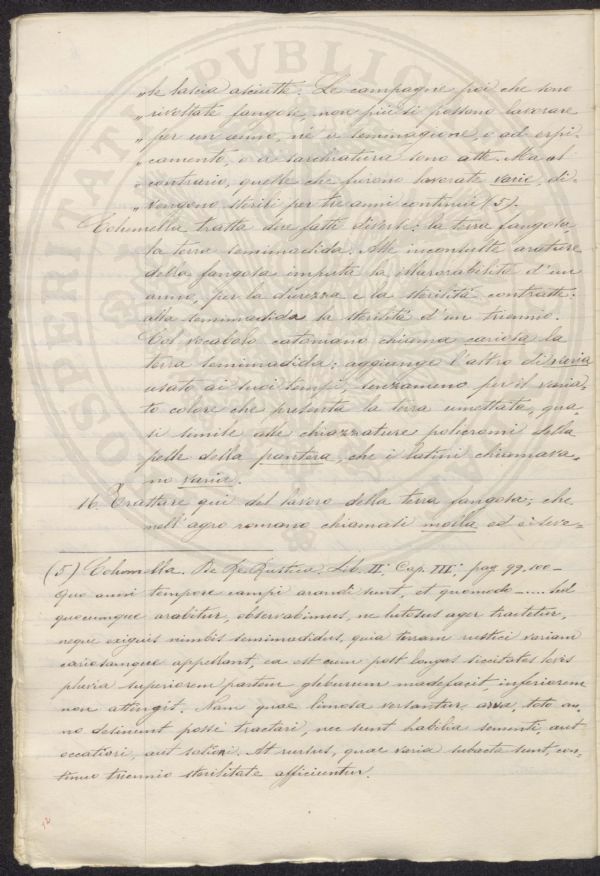 „le lascia asciutte. Le campagne poi che sono
„rivoltate fangose, non più si possono lavorare
„per un anno, nè a seminagione, o ad erpi-
„camento, o a sarchiatura sono atte. Ma al
„contrario, quelle che furono lavorate varie, di-
„vengono sterili per tre anni continui (5).
Columella tratta due fatti diversi: la terra fangosa,
la terra semimadida. Alle inconsulte arature
della fangosa imputa la illavorabilità d'un
anno, per la durezza e la sterilità contratte:
alla semimadida la sterilità d'un triennio.
Col vocabolo catoniano chiama cariosa la
terra semimadida; aggiunge l'altro di varia
usato ai suoi tempi, senzameno per il varia-
to colore che presenta la terra umettata, qua-
si simile alle chiazzature policromi della
pelle della pantera, che i latini chiamava-
no varia.
16. Trattare qui del lavoro della terra fangosa, che
nell'agro romano chiamasi molla ed è seve-
(5) Columella. De Re Rustica. Lib. II. Cap. III; pag. 99.100-
Quo anni tempore campi arandi sunt, et quomodo ...... Sed
quocumque arabitur, observabimus, ne lutosus ager tractetur,
neque exiguis nimbis semimadidus, quia terram rustici variam
cariosamque appellant, ea est cum post longas siccitates levis
pluvia superiorem partem glebarum madefacit, inferiorem
non attingit. Nam quae limosa versantur arva, toto an-
no desinunt posse tractari, nec sunt habilia sementi, aut
occationi, aut sationi. At rursus, quae varia subacta sunt, con-
tinuo triennio sterilitate afficiuntur.
PVBLICAE
PROSPERITATI